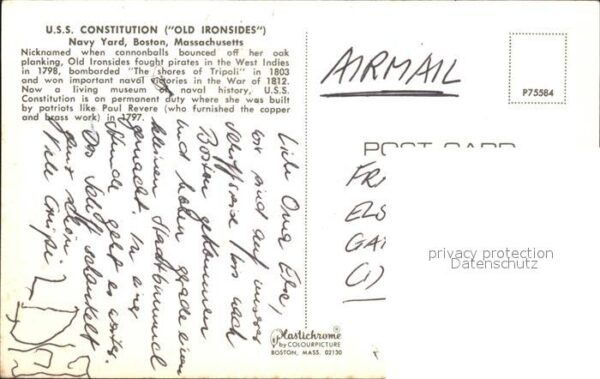 U.S.S. CONSTITUTION ("OLD IRONSIDES")
Navy Yard, Boston, Massachusetts
Nicknamed when cannonballs bounced off her oak
planking, Old Ironsides fought pirates in the West Indies
in 1798, bombarded "The shores of Tripoli" in 1803
and won important naval victories in the War of 1812.
Now a living museum to naval history, U.S.S.
Constitution is on permanent duty where she was built
by patriots like Paul Revere (who furnished the copper
and brass work) in 1797.
Liebe Oma Else,
wir sind auf unserer
Schiffsreise bis nach
Boston gekommen
und haben gerade einen
kleinen Stadtbummel
gemacht. In einer
Stunde geht es weiter.
Das Schiff schaukelt
ganz schön
Viele Grüße
AIRMAIL
P75584
POST CARD
FR
ELS
GA
privacy protection
Datenschutz
Plastichrome®
by COLOURPICTURE
BOSTON, MASS. 02130